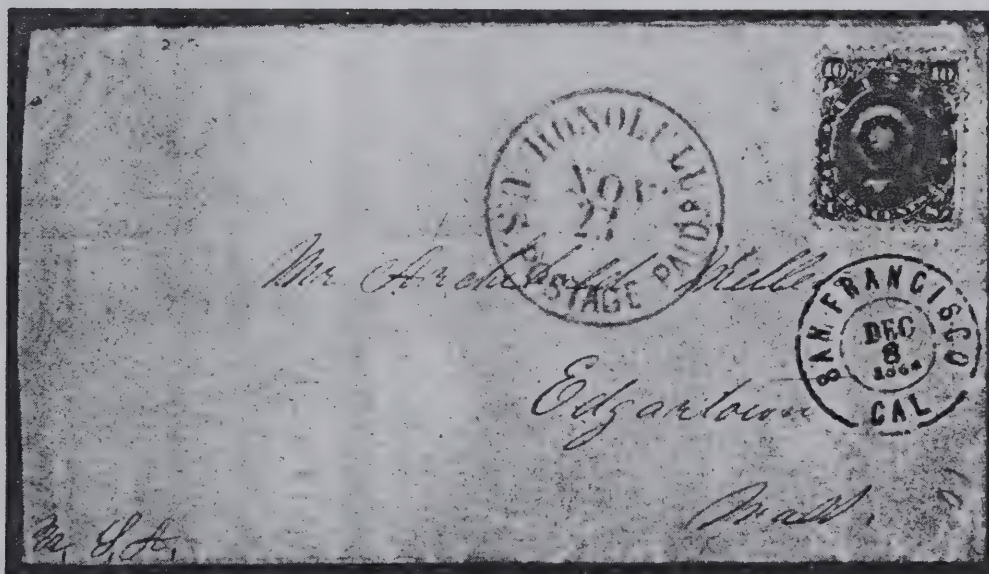 10 10
HONOLULU
U.S. POSTAGE PAID
NOV.
Mr Archibald Melle
SAN FRANCISCO
DEC
8
CAL
Edgartown
Mass.